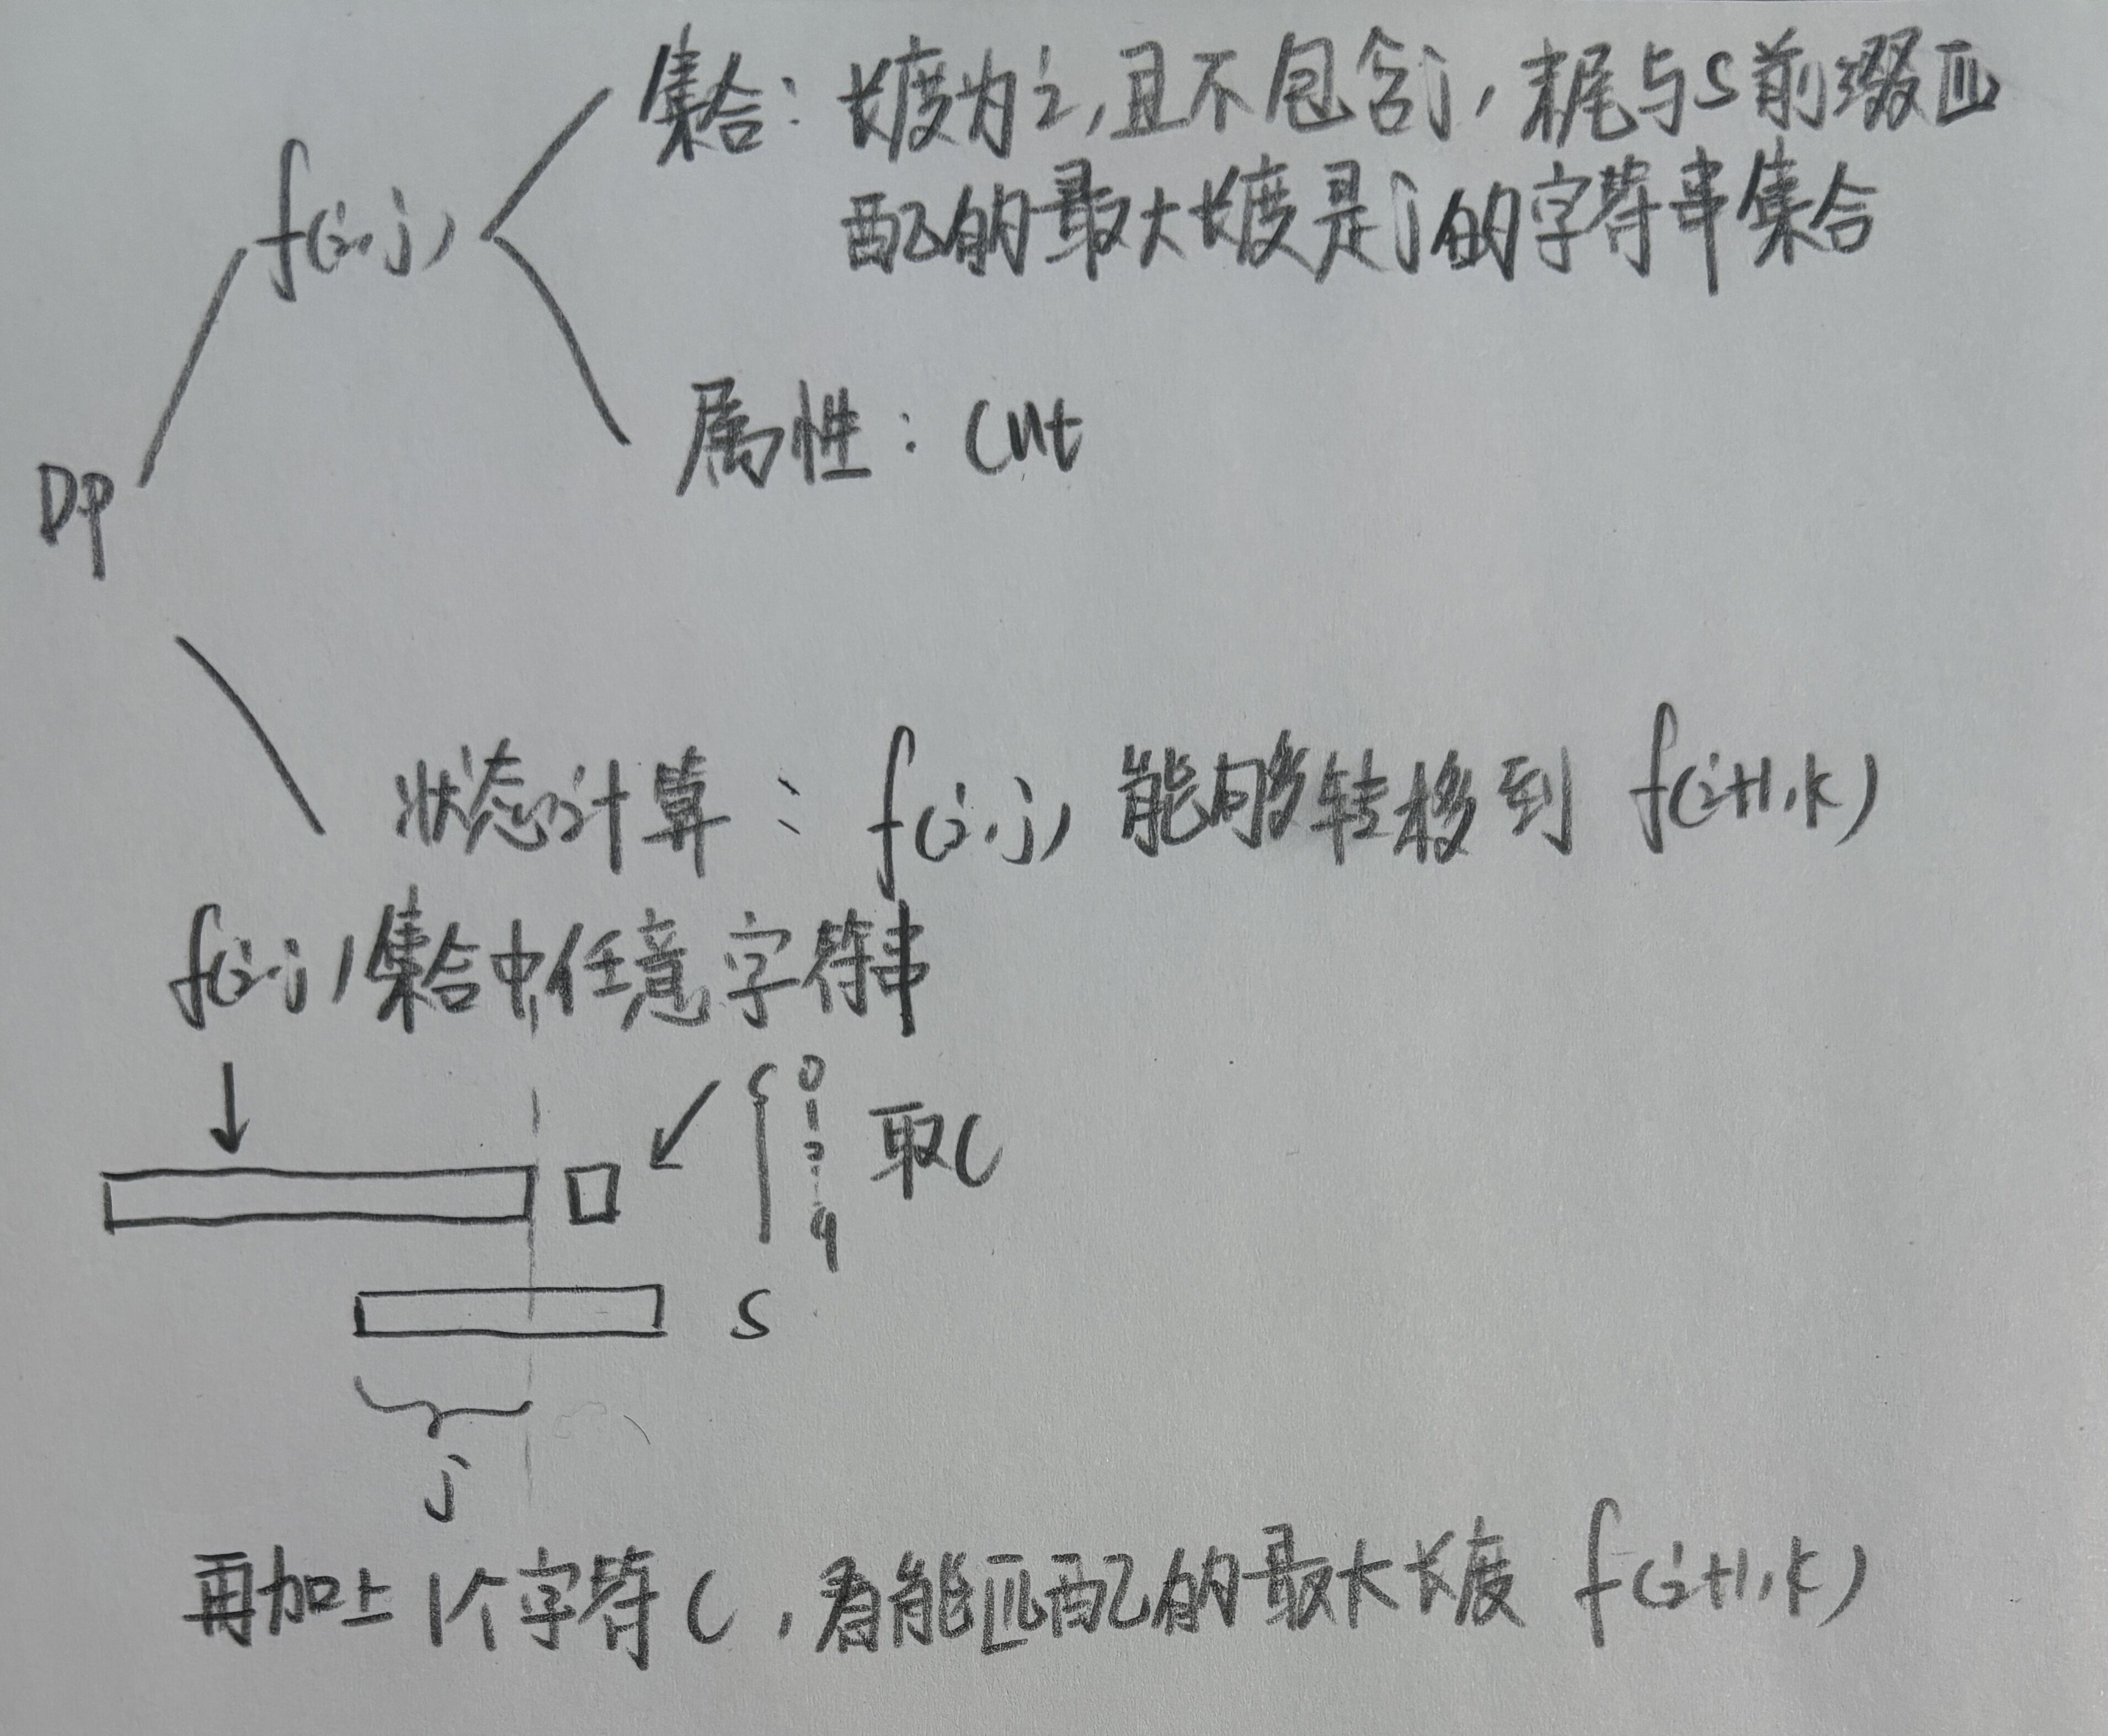 集合：长度为i,且不包含j，末尾与S前缀匹
配的最大长度是j的字符串集合
f(i,j)
属性：cnt
DP
状态计算：f(i,j)能够转移到 f(i+1,k)
f(i,j)集合中任意字符串
0
1
2
取C
9
S
j
再加上1个字符C，看能匹配的最大长度 f(i+1,k)